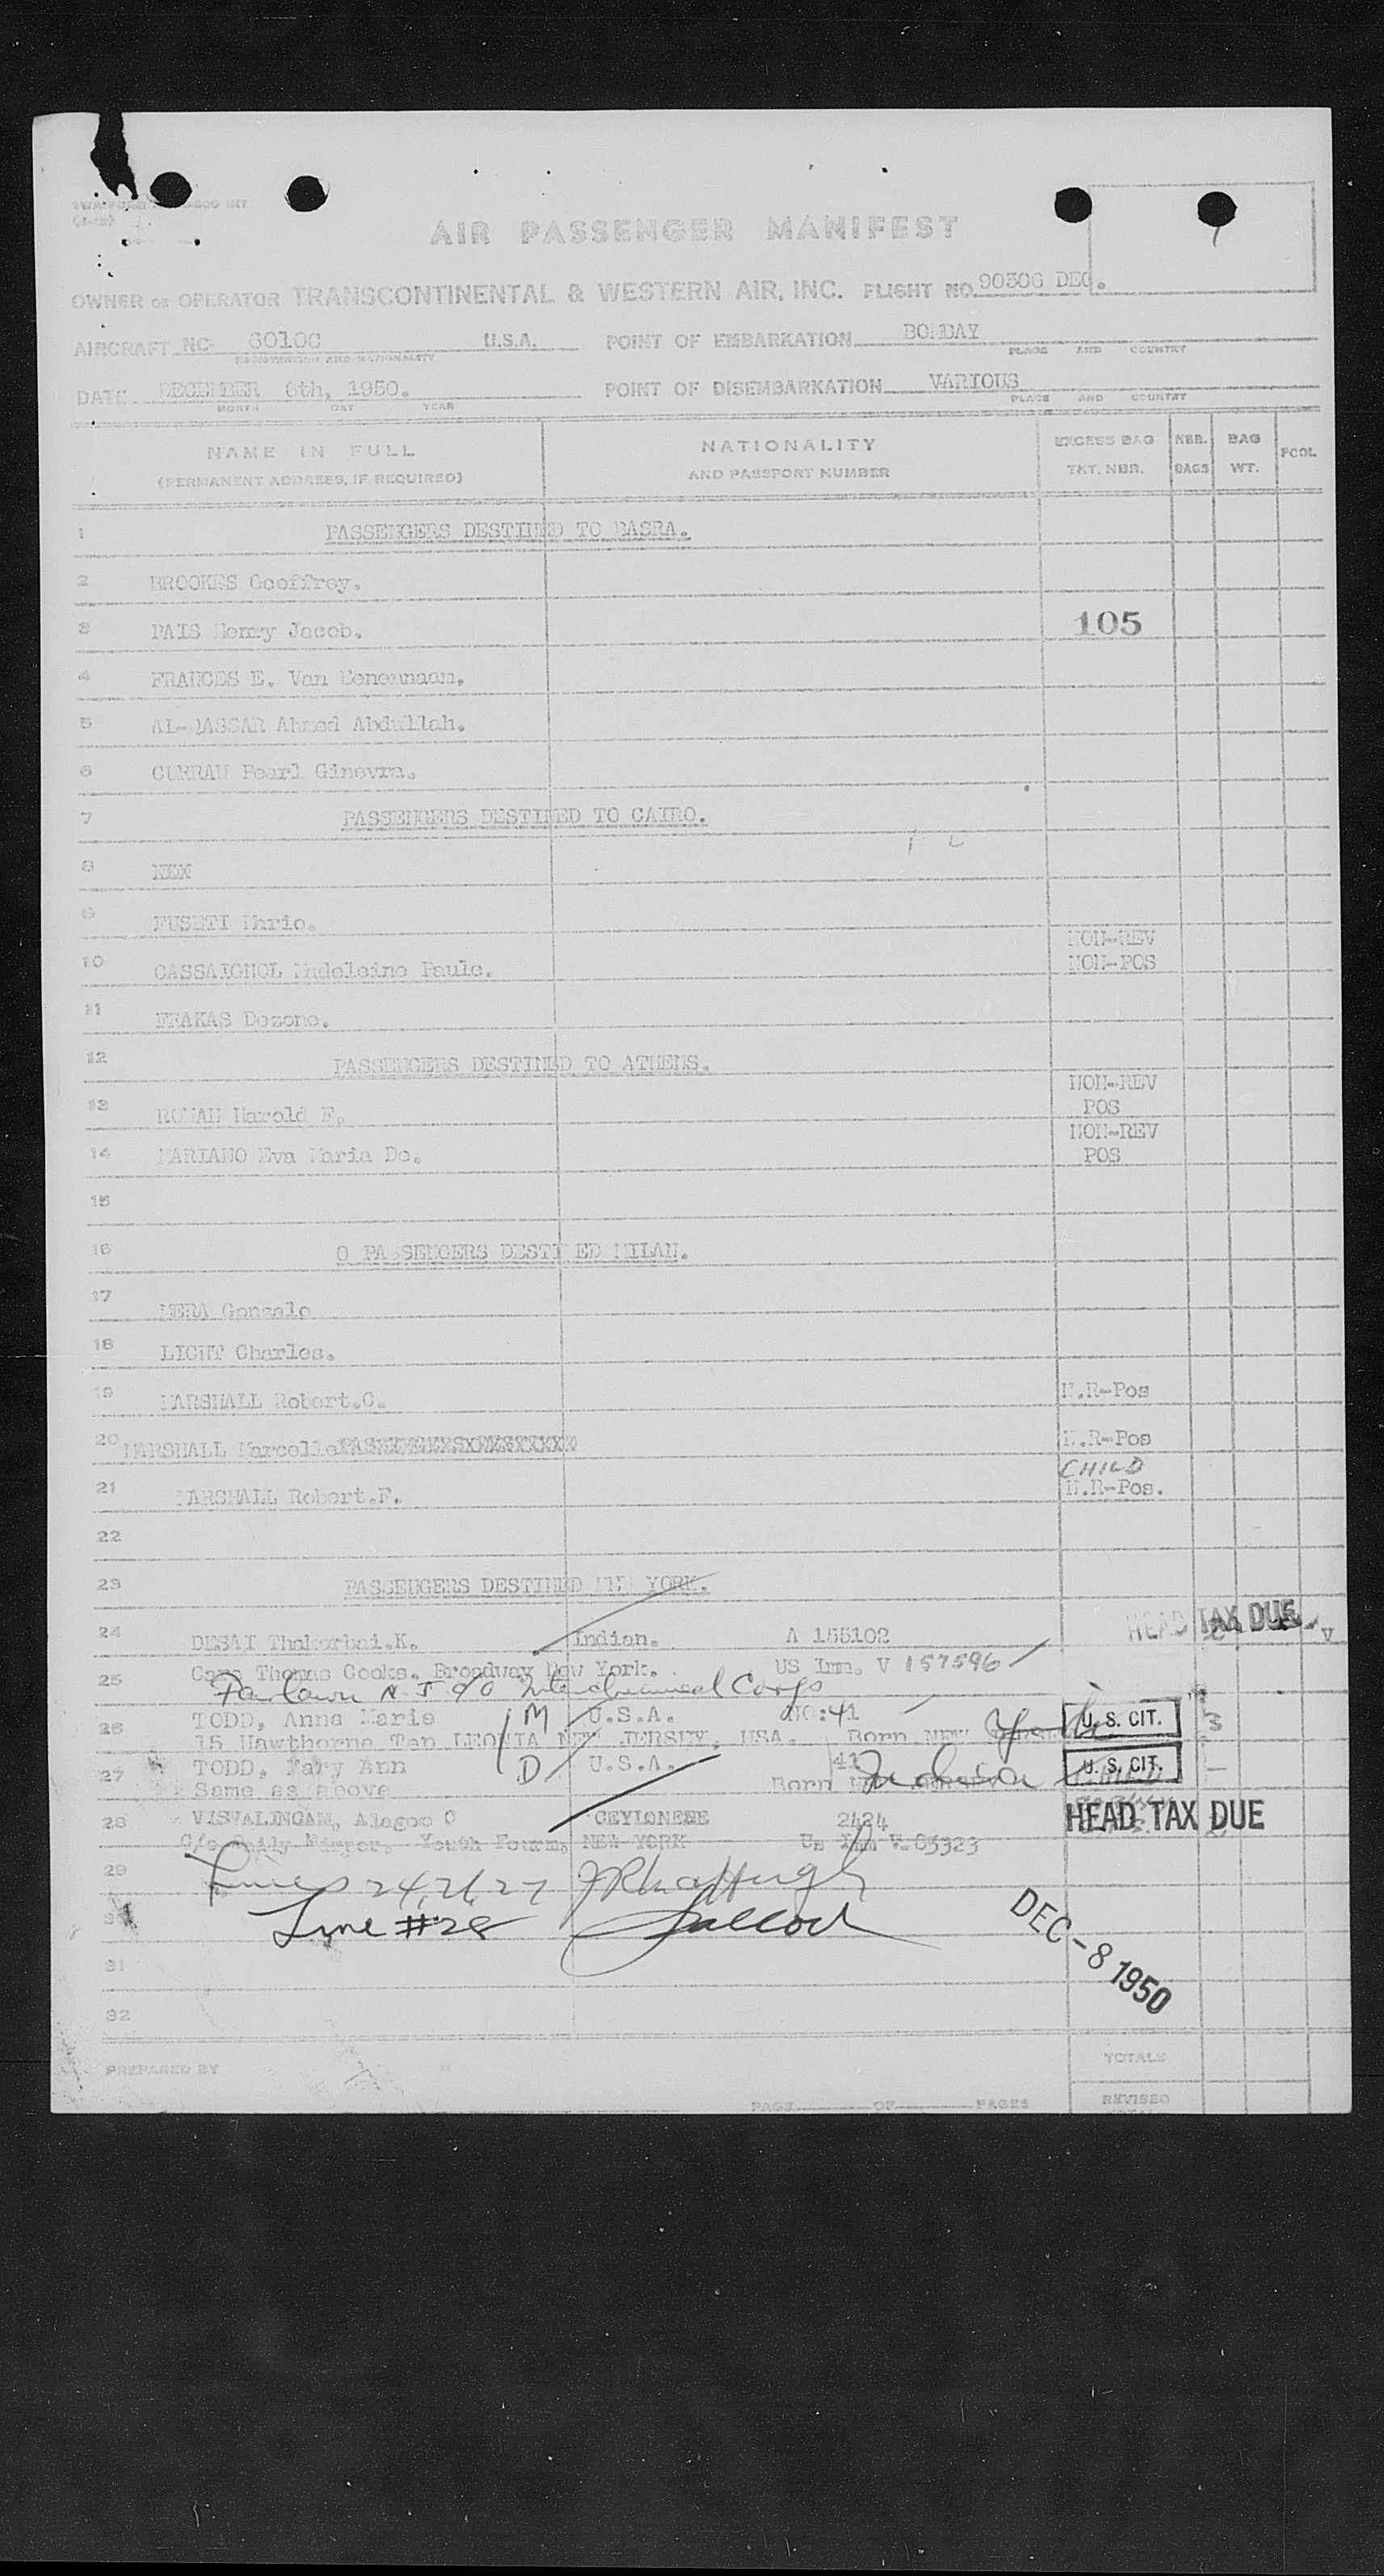 AIR PASSENGER MANIFEST
OWNER OR OPERATOR TRANSCONTINENTAL & WESTERN AIR, INC. FLIGHT NO. 90306 DEC.
AIRCRAFT NC- 6010C U.S.A. POINT OF EMBARKATION BOMBAY
REGISTRATION AND NATIONALITY PLACE AND COUNTRY
DATE DECEMBER 6th, 1950. POINT OF DISEMBARKATION VARIOUS
MONTH DAY YEAR PLACE AND COUNTRY
NAME IN FULL NATIONALITY EXCESS BAG NBR. BAG PCOL
(PERMANENT ADDRESS, IF REQUIRED) AND PASSPORT NUMBER TKT. NBR. BAGS WT.
1 PASSENGERS DESTINED TO BASRA.
2 BROOKES Geoffrey.
3 PAIS Henry Jacob. 105
4 FRANCES E. Van
5 AL-QASSAR Ahmed Abdullah.
6 CURRAN Pearl Ginevra.
7 PASSENGERS DESTINED TO CAIRO.
8
9 FUSETI Mario.
NON-REV
10 CASSAIGNOL Madeleine Paule. NON-POS
11 FRAKAS Dezone.
12 PASSENGERS DESTINED TO ATHENS.
NON-REV
13 ROMAN Harold F. POS
NON-REV
14 MARIANO Eva Maria De. POS
15
16 O PASSENGERS DESTI ED MILAN.
17 MERA Gonzalo
18 LIGHT Charles.
19 MARSHALL Robert.C. N.R-Pos
20 MARSHALL Marcella N.R-Pos
CHILD
21 MARSHALL Robert.F. N.R-Pos.
22
23 PASSENGERS DESTINED NEW YORK.
24 DESAI Thakorbai.K. Indian. A 155102 HEAD TAX DUE
25 Care Thomas Cooks. Broadway New York. US Imm. V 157596
Fairlawn N.J c/o Interchemical Corps
26 TODD, Anna Marie M U.S.A. NO:41 U. S. CIT. 3
15 Hawthorne Ten LEONIA NEW JERSEY, USA. Born NEW York
27 TODD, Mary Ann D U.S.A. 41 U. S. CIT.
Same as above Born
28 VISVALINGAM, Alagoo C CEYLONESE 2424 HEAD TAX DUE
C/o Daily Mirror, Youth Forum, NEW YORK Us Imm V-63323
29 Lines 24, 26, 27
30 Line #28
DEC -8 1950
31
32
PREPARED BY TOTALS
PAGE OF PAGES REVISED